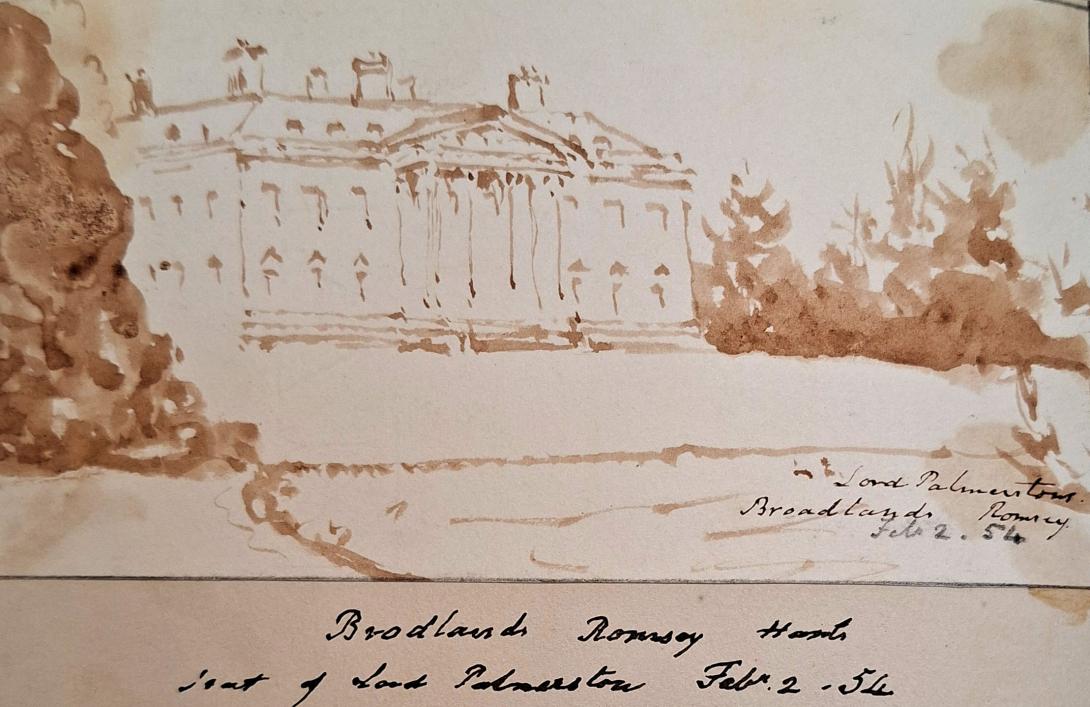 Lord Palmerstons
Broadlands Romsey
Feb 2. 54
Brodlands Romsey Hants
seat of Lord Palmerston Febr. 2. 54